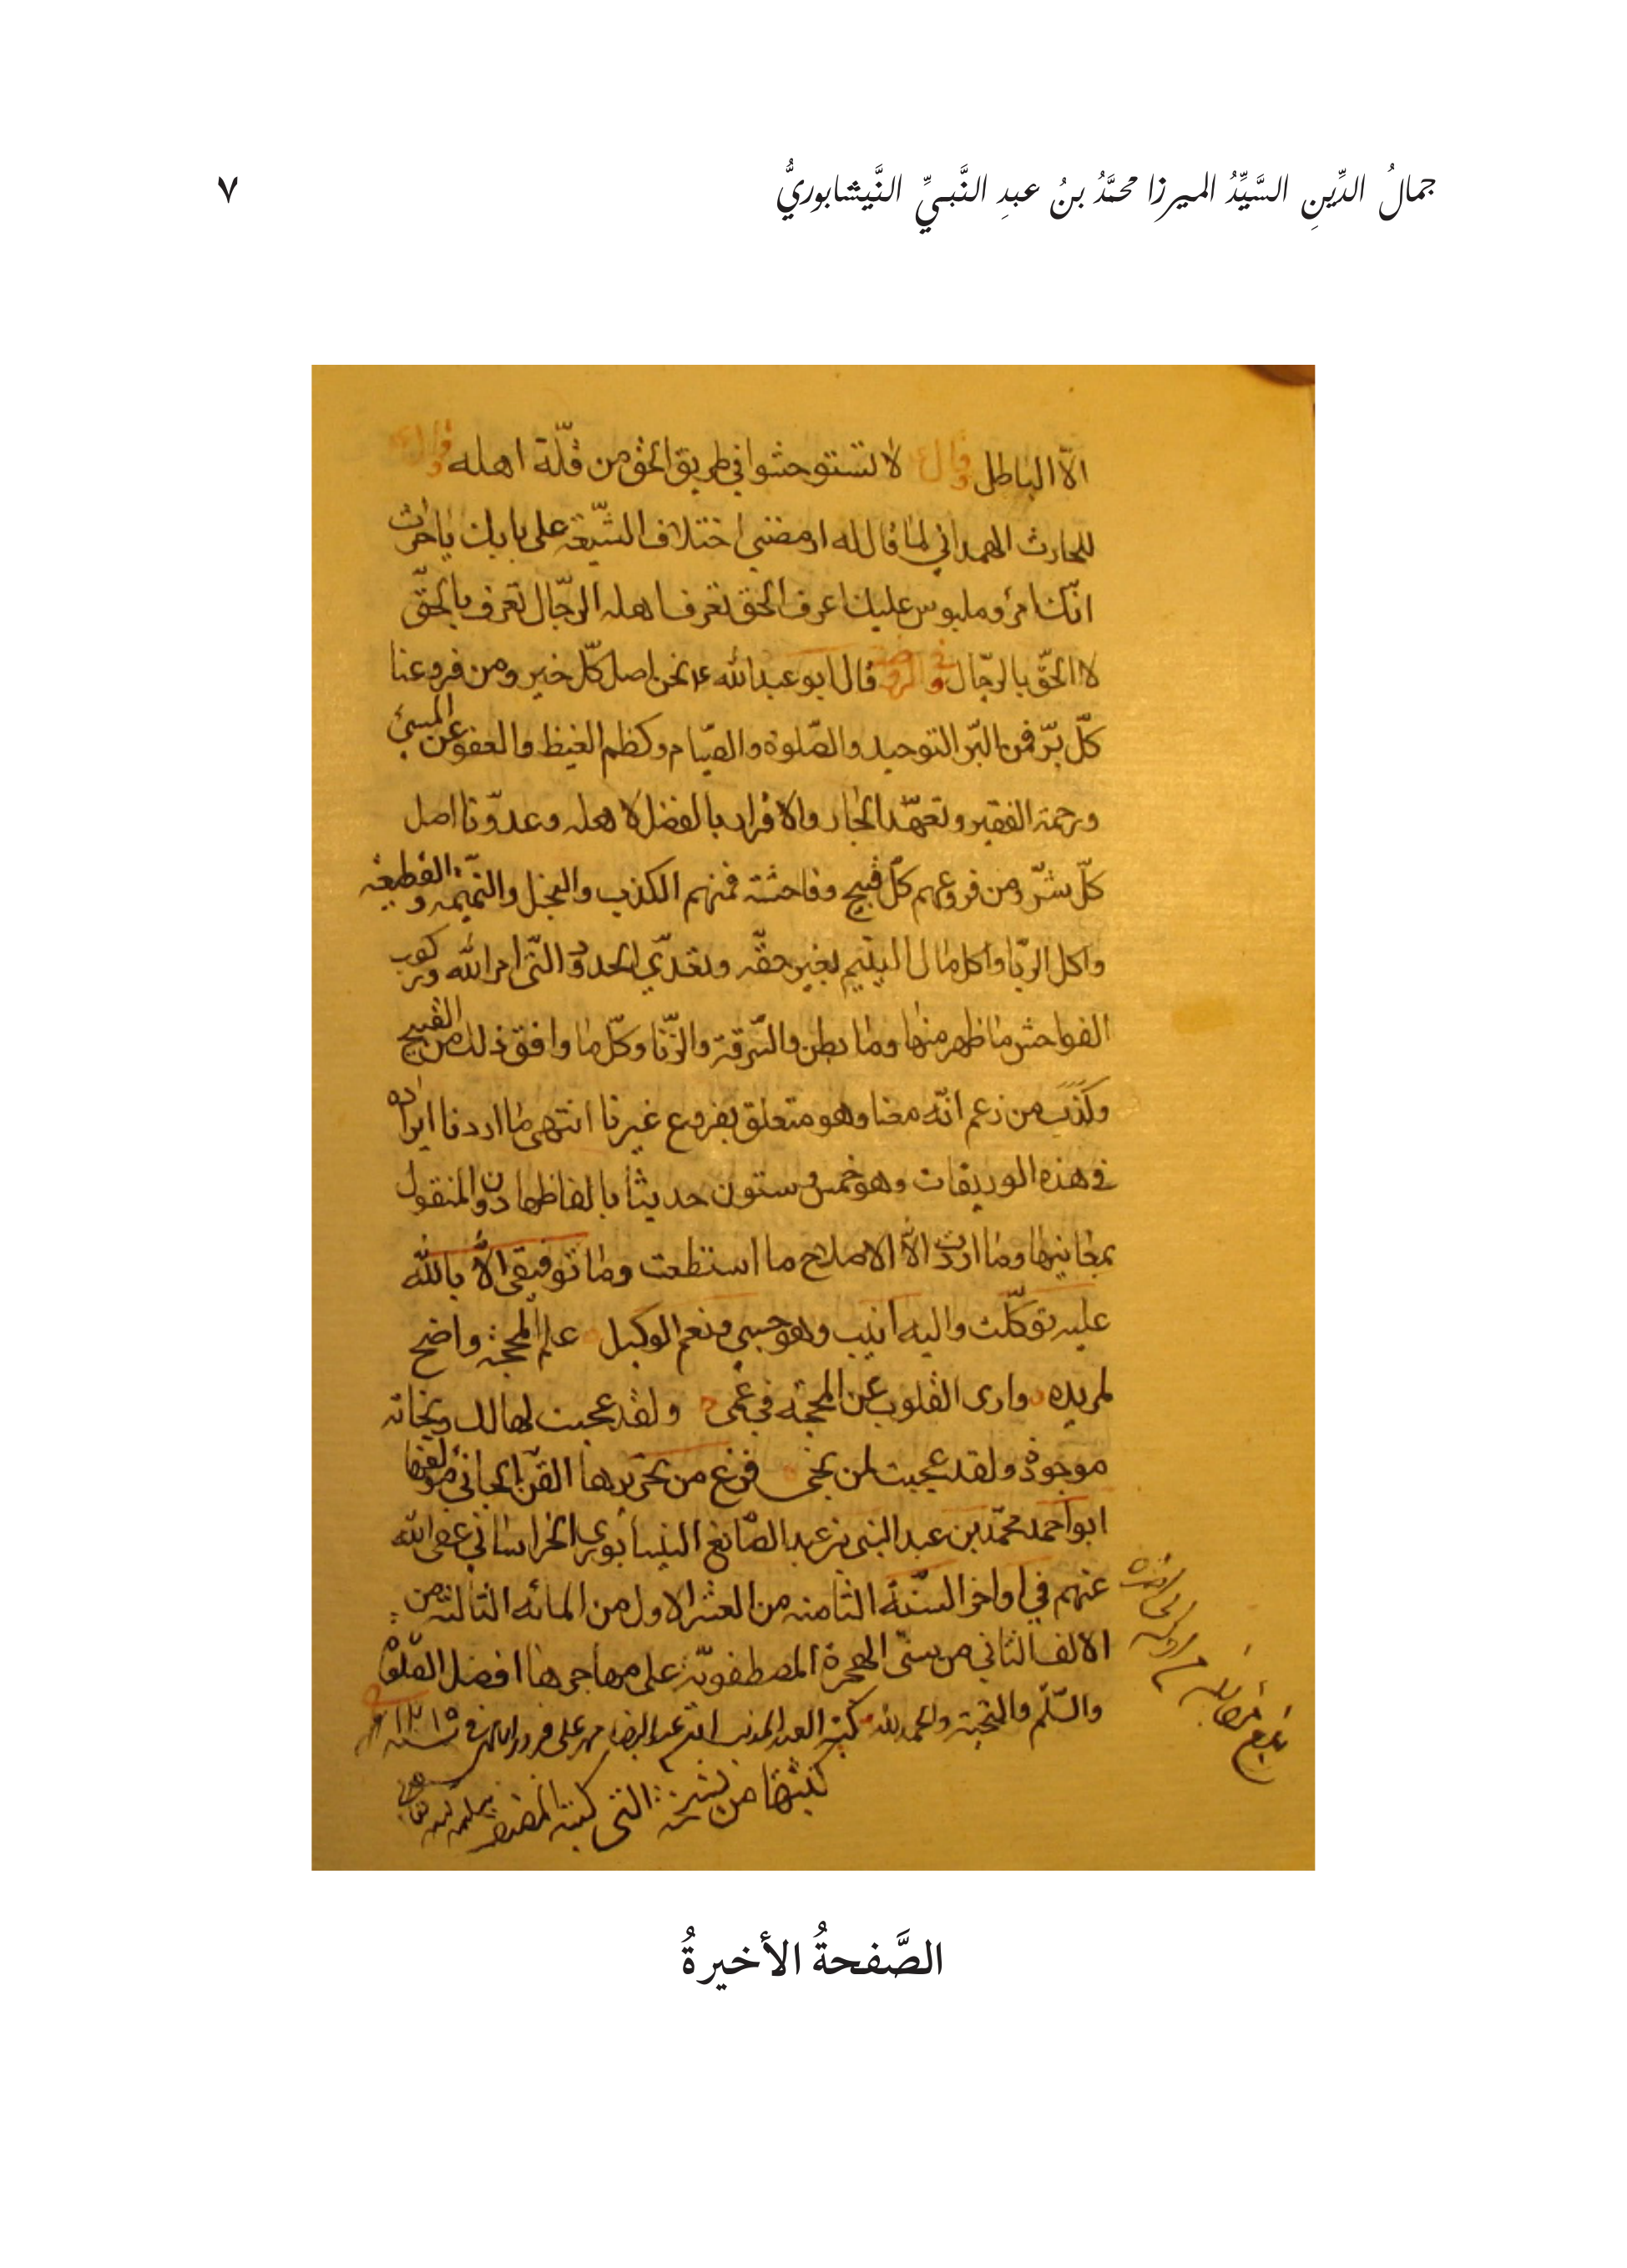 جمالُ الدِّينِ السَّيِّدُ الميرزا محمَّدُ بنُ عبدِ النَّبيِّ النَّيشابوريُّ ٧
الاّ الباطل وقال ع لا تستوحشوا في طريق الحق من قلّة اهله وقال ع
للحارث الهمداني لما قال له ارمضني اختلاف الشيعة على بابك يا حارث
انّك امرؤ ملبوس عليك اعرف الحق تعرف اهله الرّجال تعرف بالحقّ
لا الحقّ بالرّجال وفي الروضة قال ابو عبد الله ع نحن اصل كلّ خير ومن فروعنا
كلّ برّ فمن البّر التوحيد والصّلوة والصّيام وكظم الغيظ والعفو عن المسيئ
ورحمة الفقير وتعهّد الجار والاقرار بالفضل لاهله وعدوّنا اصل
كلّ شرّ ومن فروعهم كلّ قبيح وفاحشة فمنهم الكذب والبخل والنّميمة والقطيعة
واكل الرّبا واكل مال اليتيم بغير حقّه وتعدّي الحدود الّتى امر الله وركوب
الفواحش ما ظهر منها وما بطن والسّرقة والزّنا وكلّ ما وافق ذلك من القبيح
وكذب من زعم انّه معنا وهو متعلق بفروع غيرنا انتهى ما اردنا ايراده
في هذه الوريقات وهو خمس وستون حديثا بالفاظها دون المنقول
بمعانيها وما اردت الاّ الاصلاح ما استطعت وما توفيقي الاّ بالله
عليه توكّلت واليه انيب وهو حسبي ونعم الوكيل علم المحجة واضح
لمريده وارى القلوب عن المحجّة في عمى ولقد عجبت لهالك ونجاته
موجودة ولقد عجبت لمن نجى فرغ من تحريرها القنّ الجاني مؤلفها
ابو احمد محمّد بن عبد النبي بن عبد الصّانع النيسابوري الخراساني عفى الله
عنهم في اواخر السّنة الثامنة من العشر الاول من المائه الثالثة من
الالف الثاني من سنى الهجرة المصطفويّة على مهاجرها افضل الصّلوة
والسّلم والتحية والحمد لله كتبه العبد المذنب في سنة ١٢١٥
كتبتها من نسخة التى كتبت
الصَّفحةُ الأخيرةُ